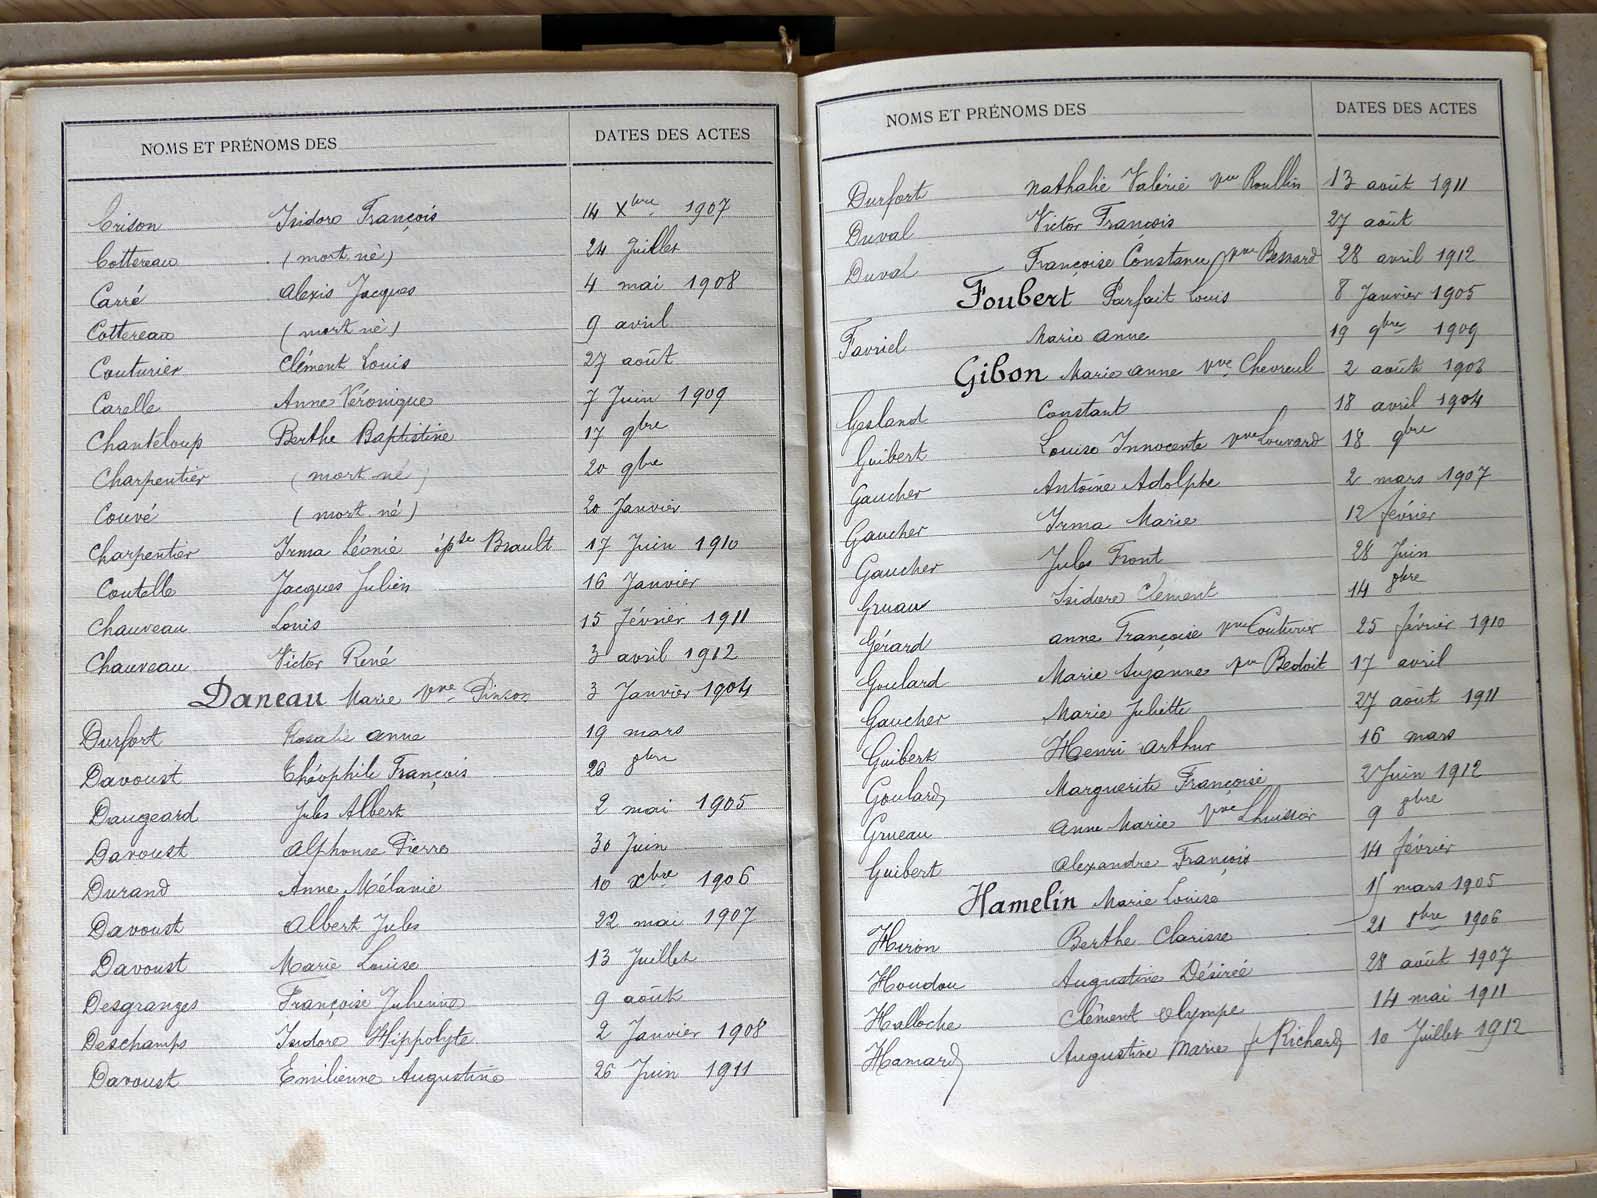 NOMS ET PRÉNOMS DES DATES DES ACTES
Crison Isidore François 14 Xbre 1907
Cottereau (mort né) 24 Juillet
Carré Alexis Jacques 4 mai 1908
Cottereau (mort né) 9 avril
Couturier Clément Louis 27 août
Carelle Anne Véronique 7 Juin 1909
Chanteloup Berthe Baptistine 17 9bre
Charpentier (mort né) 20 9bre
Couvé (mort né) 20 Janvier
Charpentier Irma Léonie épse Brault 17 Juin 1910
Coutelle Jacques Julien 16 Janvier
Chauveau Louis 15 février 1911
Chauveau Victor René 3 avril 1912
Daneau Marie vve Pinson 3 Janvier 1904
Durfort Rosalie Anne 19 mars
Davoust Théophile François 26 8bre
Daugeard Jules Albert 2 mai 1905
Davoust Alphonse Pierre 30 Juin
Durand Anne Mélanie 10 Xbre 1906
Davoust Albert Jules 22 mai 1907
Davoust Marie Louise 13 Juillet
Desgranges Françoise Julienne 9 août
Deschamps Isidore Hippolyte 2 Janvier 1908
Davoust Emilienne Augustine 26 Juin 1911
NOMS ET PRÉNOMS DES DATES DES ACTES
Durfort Nathalie Valérie vve Roullin 13 août 1911
Duval Victor François 27 août
Duval Françoise Constance vve Bessard 28 avril 1912
Foubert Parfait Louis 8 Janvier 1905
Favriel Marie Anne 19 9bre 1909
Gibon Marie Anne vve Chevreul 2 août 1903
Gesland Constant 18 avril 1904
Guibert Louise Innocente vve Louvard 18 9bre
Gaucher Antoine Adolphe 2 mars 1907
Gaucher Irma Marie 12 février
Gaucher Jules Front 28 Juin
Gruau Isidore Clément 14 8bre
Gérard Anne Françoise vve Couturier 25 février 1910
Goulard Marie Suzanne vve Bedoit 17 avril
Gaucher Marie Juliette 27 août 1911
Guibert Henri Arthur 16 mars
Goulard Marguerite Françoise 2 Juin 1912
Grueau Anne Marie vve Lhuissier 9 8bre
Guibert Alexandre François 14 février
Hamelin Marie Louise 15 mars 1905
Huron Berthe Clarisse 21 8bre 1906
Houdou Augustine Désirée 28 août 1907
Halloche Clément Olympe 14 mai 1911
Hamard Augustine Marie fe Richard 10 Juillet 1912